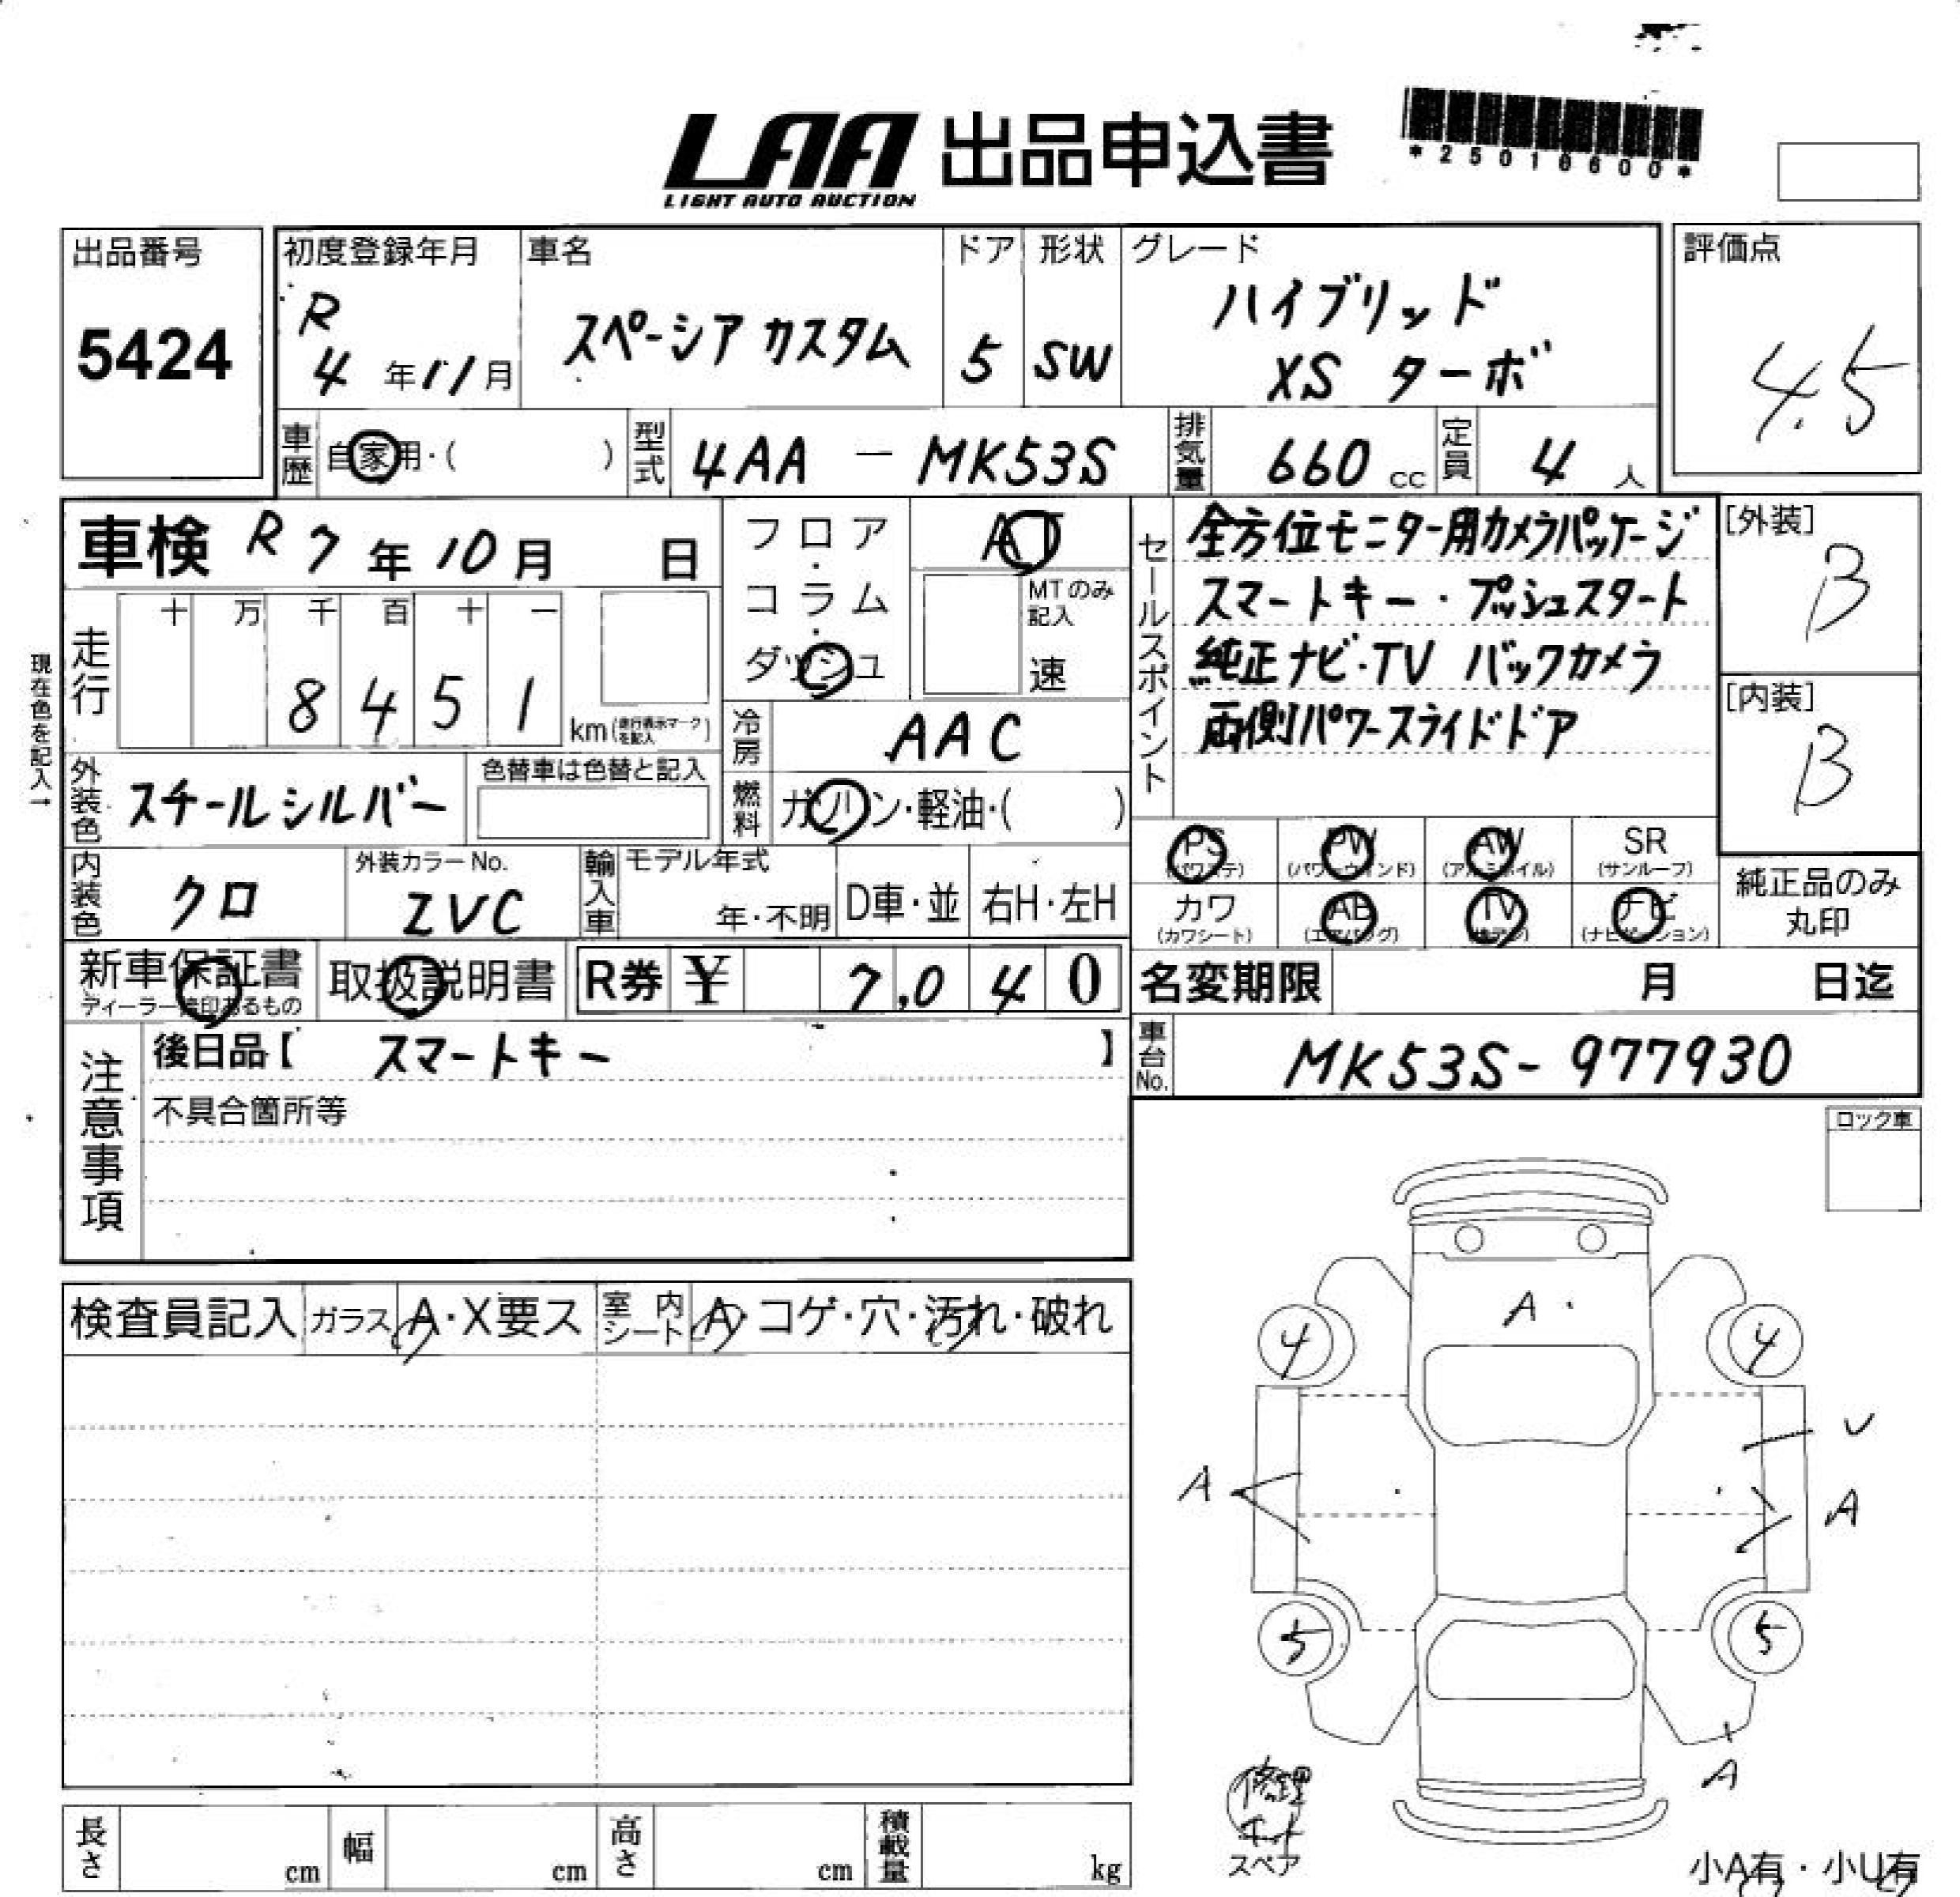 LAA 出品申込書
LIGHT AUTO AUCTION
*25018600*
出品番号
5424
初度登録年月
R
4 年 11 月
車名
スペーシア カスタム
ドア
5
形状
SW
グレード
ハイブリッド
XS ターボ
評価点
4.5
車歴
自家用・( )
型式
4AA — MK53S
排気量
660 cc
定員
4 人
車検 R 7 年 10 月 日
フロア・コラム・ダッシュ
AT
MTのみ記入
速
セールスポイント
全方位モニター用カメラパッケージ
スマートキー・プッシュスタート
純正ナビ・TV バックカメラ
両側パワースライドドア
[外装]
B
[内装]
B
現在色を記入→
走行
十 万 千 百 十 一
8 4 5 1
km(走行表示マークを記入)
冷房
AAC
外装色
スチールシルバー
色替車は色替と記入
燃料
ガソリン・軽油・( )
内装色
クロ
外装カラーNo.
ZVC
輸入車
モデル年式
年・不明
D車・並
右H・左H
PS (パワステ)
PW (パワーウィンド)
AW (アルミホイル)
SR (サンルーフ)
カワ (カワシート)
AB (エアバッグ)
TV (テレビ)
ナビ (ナビゲーション)
純正品のみ
丸印
新車保証書
ディーラー捺印あるもの
取扱説明書
R券 ¥ 7,040
名変期限 月 日迄
注意事項
後日品【 スマートキー 】
不具合箇所等
車台No.
MK53S-977930
ロック車
検査員記入
ガラス A・X要ス
室内シート A・コゲ・穴・汚れ・破れ
A
4 4
U
A A
5 5
A
修理
キット
スペア
小A有・小U有
長さ cm
幅 cm
高さ cm
積載量 kg